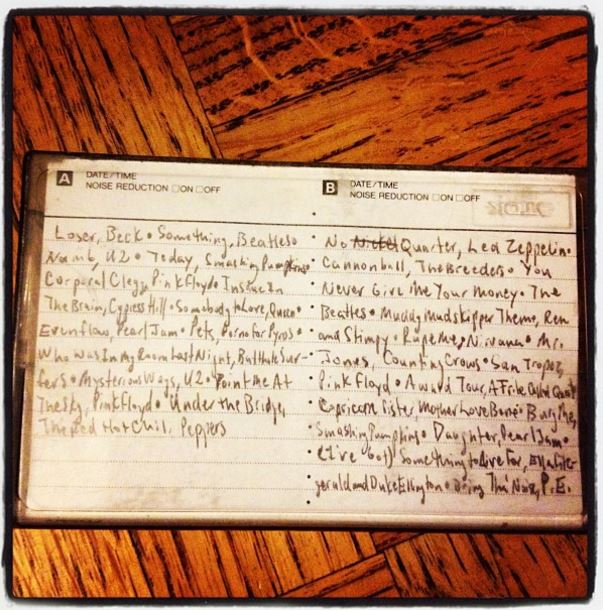 A DATE/TIME
NOISE REDUCTION □ON □OFF
Loser, Beck • Something, Beatles •
Numb, U2 • Today, Smashing Pumpkins •
Corporal Clegg, Pink Floyd • Insane In
The Brain, Cypress Hill • Somebody to Love, Queen •
Evenflow, Pearl Jam • Pets, Porno for Pyros •
Who Was In My Room Last Night, Butthole Sur-
fers • Mysterious Ways, U2 • Point Me At
The Sky, Pink Floyd • Under the Bridge,
The Red Hot Chili Peppers
B DATE/TIME
NOISE REDUCTION □ON □OFF
No Quarter, Led Zeppelin •
Cannonball, The Breeders • You
Never Give Me Your Money • The
Beatles • Muddy Mudskipper Theme, Ren
and Stimpy • Rape Me, Nirvana • Mr.
Jones, Counting Crows • San Tropez,
Pink Floyd • Award Tour, A Tribe Called Quest
• Capricorn Sister, Mother Love Bone •
Smashing Pumpkins • Daughter, Pearl Jam •
(I've Got) Something to Live For, Ella Fitz-
gerald and Duke Ellington • Bring Tha Noize, P.E.